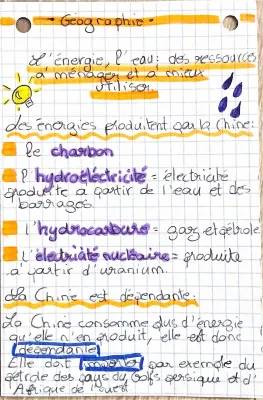 Géographie.
L'énergie, l'eau; des ressources
à ménager et à mieux
utiliser
des énergies produitent par la Chine:
le charbon
l'hydroéléctricité = électricité
produite a partir de l'eau et des
barrages.
l'hydrocarbure = gaz et pétrole
l'électricité nucléaire = produite
a partir d'uranium.
La Chine est dépendante:
La Chine consomme plus d'énergie
qu'elle n'en produit, elle est donc
dépendante
Elle doit importer par exemple du
pétrole des pays du Golfe persique et d'
Afrique de l'ouest